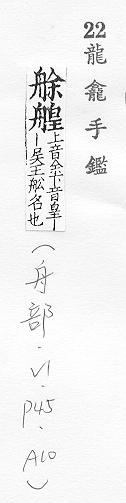 22龍龕手鑑
艅艎上音余下音皇丨
丨吳王舩名也
(舟部.V1.P45.A10)